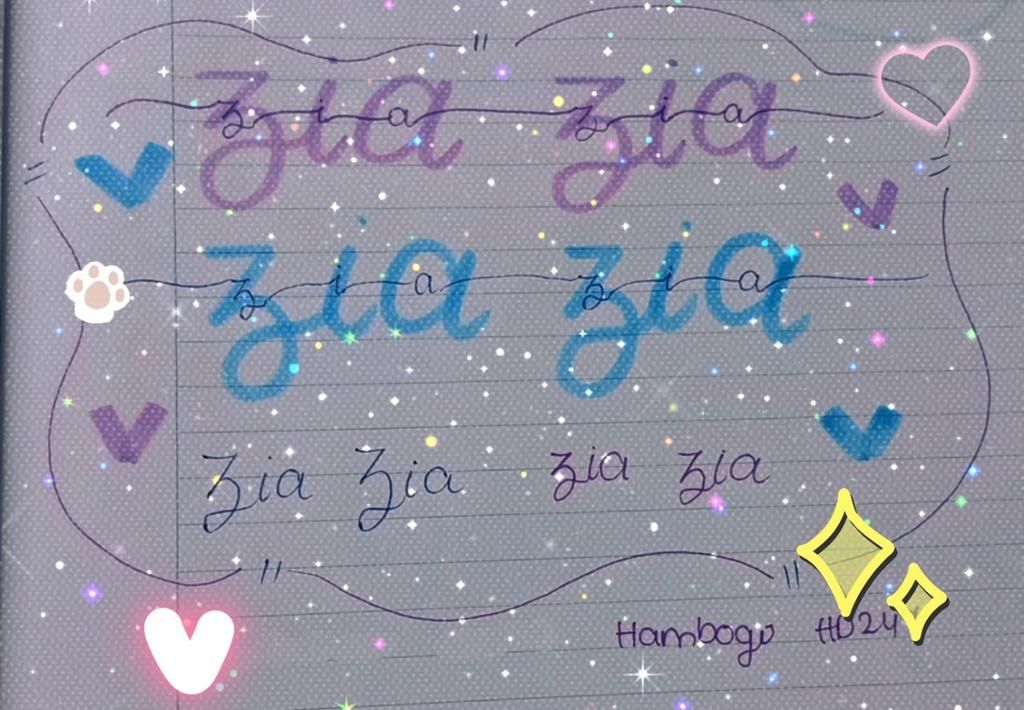 zia zia
zia zia
zia zia
zia zia
zia zia zia zia
Hambogu HD24